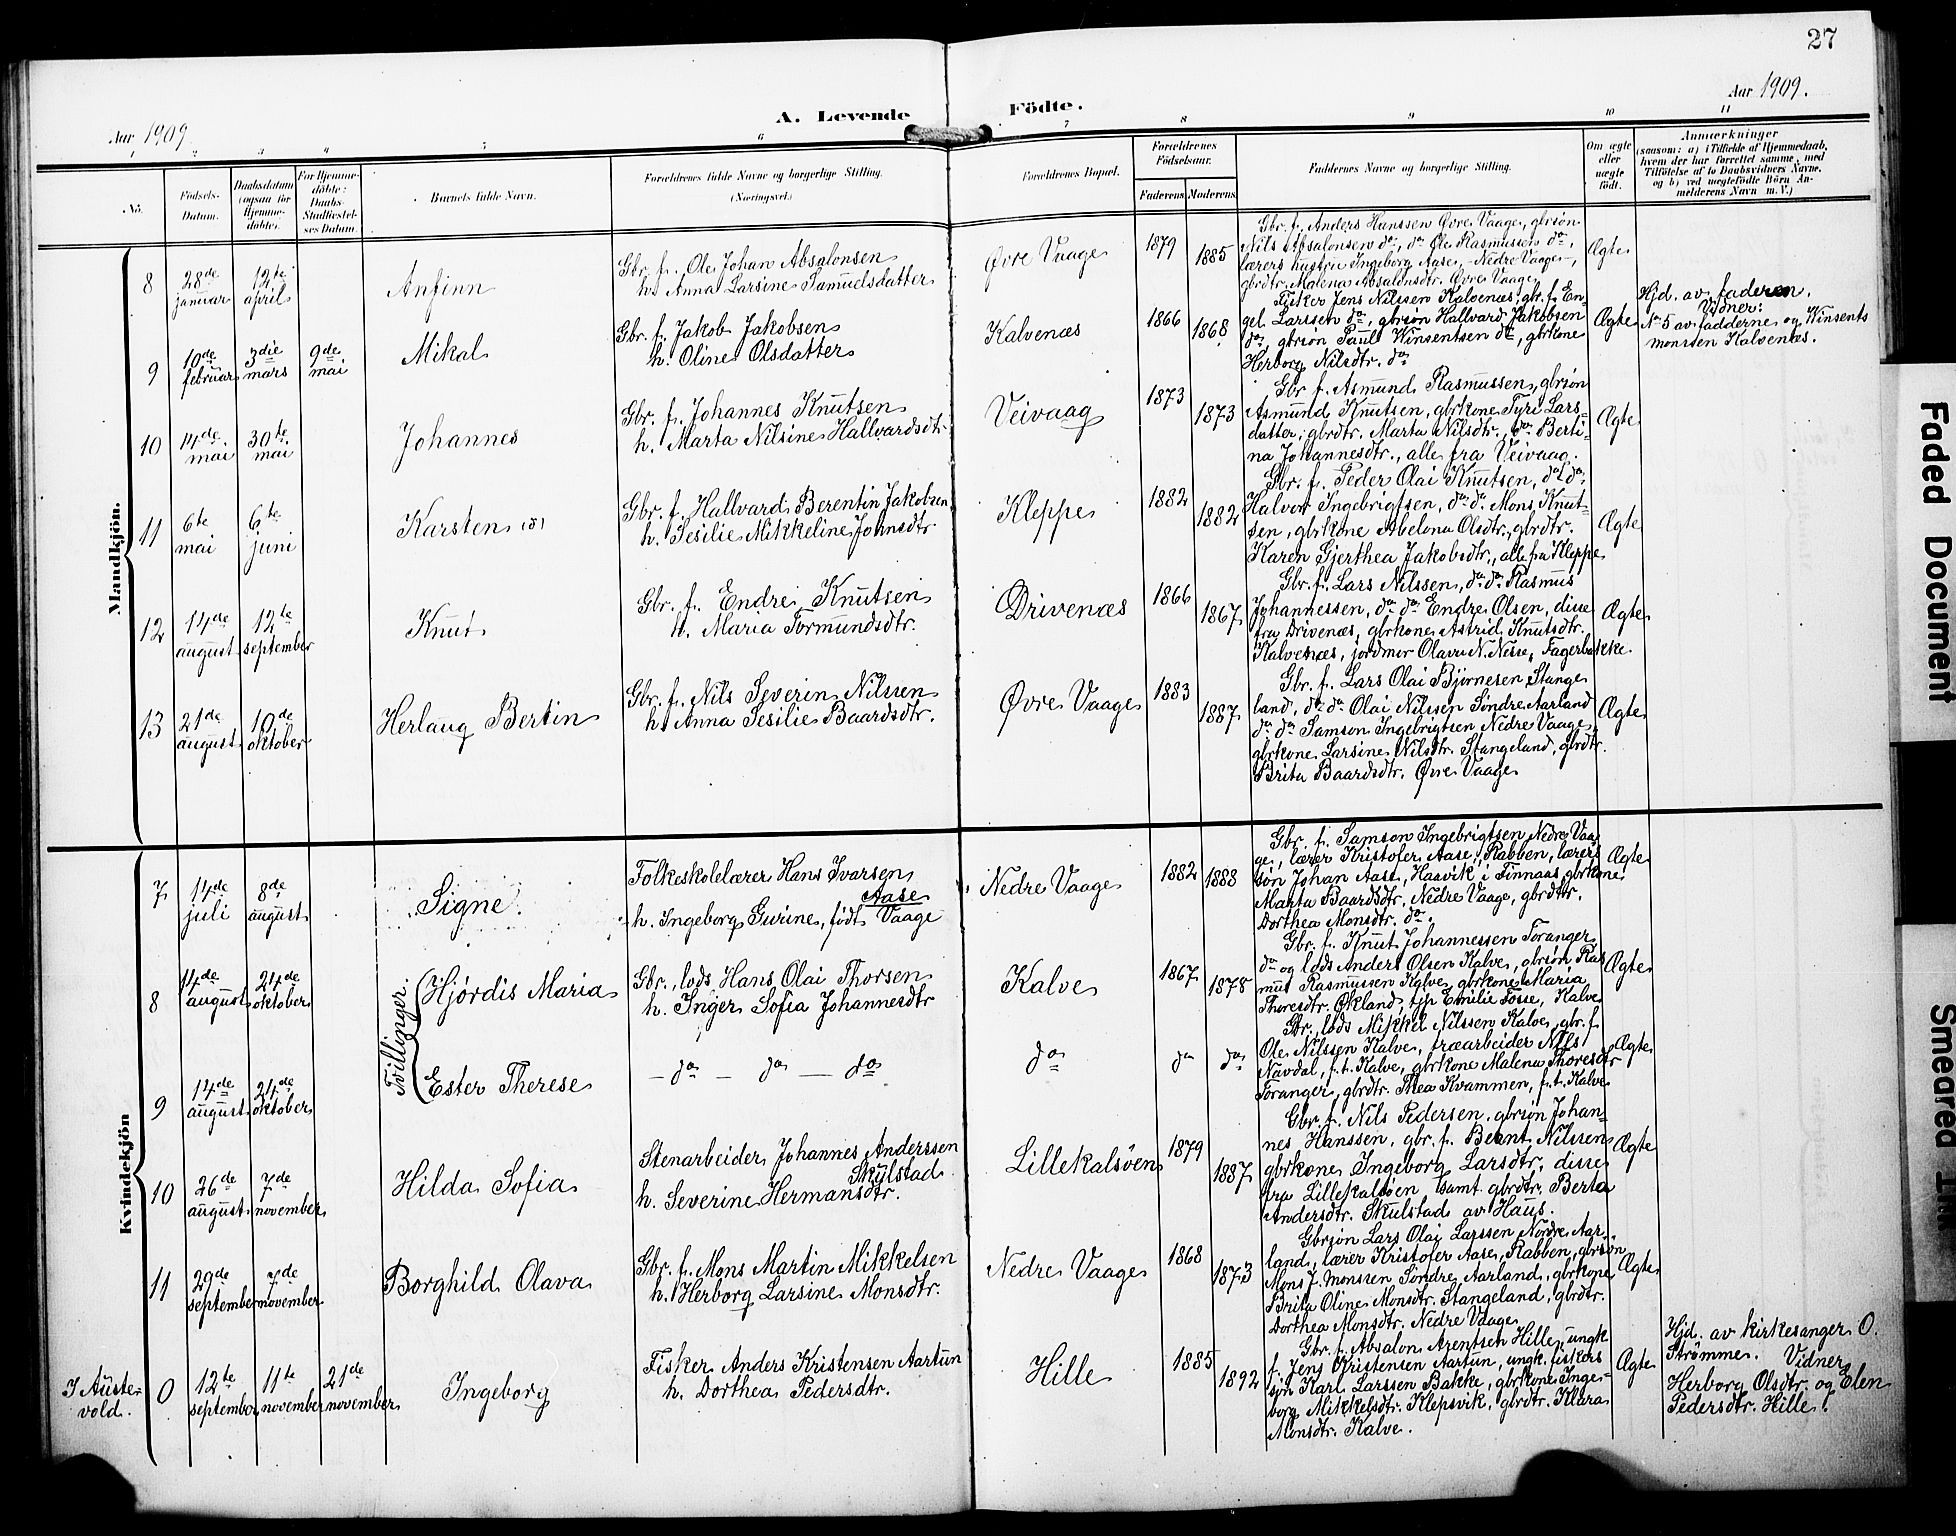 27
Aar 1909
A. Levende Födte.
Aar 1909.
1 2 3 4 5 6 7 8 9 10 11
No.
Födsels-
Datum.
Daabsdatum
(ogsaa for
Hjemme-
döbte).
For Hjemme-
döbte:
Daabs-
Stadfæstel-
ses Datum.
Barnets fulde Navn.
Forældrenes fulde Navne og borgerlige Stilling.
(Næringsvei.)
Forældrenes Bopæl.
Forældrenes
Födselsaar.
Faderens Moderens
Faddernes Navne og borgerlige Stilling.
Om ægte
eller
uægte
födt.
Anmærkninger
(saasom: a) i Tilfælde af Hjemmedaab,
hvem der har forrettet samme, med
Tilföielse af to Daabsvidners Navne,
og b) ved uægtefödte Börn An-
melderens Navn m. V.)
Mandkjön.
8
28de januar
12te april
Anfinn
Gbr. f. Ole Johan Absalonsen
h. Anna Larsine Samuelsdatter
Øvre Vaage
1879
1885
Gbr. f. Anders Hanssen Øvre Vaage, gbrsøn
Nils Absalonsen do, do Ole Rasmussen do,
lærers hustru Ingeborg Aase, Nedre Vaage,
gbrdtr. Malena Absalonsdtr. Øvre Vaage.
Ægte
9
10de februar
3die mars
9de mai
Mikal
Gbr. f. Jakob Jakobsen
h. Oline Olsdatter
Kalvenæs
1866
1868
Fisker Jens Nilssen Kalvenæs, gbr. f. En-
gel Larssen do, gbrsøn Hallvard Jakobsen
do, gbrsøn Paul Winsentsen do, gbrkone
Herborg Nilsdtr. do
Ægte
Hjd. av faderen.
Vidner:
No 5 av fadderne og Winsents
monsen Kalvenæs.
10
14de mai
30te mai
Johannes
Gbr. f. Johannes Knutsen
h. Marta Nilsine Hallvardsdtr
Veivaag
1873
1873
Gbr. f. Asmund Rasmussen, gbrsøn
Asmund Knutsen, gbrkone Tyri Lars-
datter, gbrdtr. Marta Nilsdtr., do Berti-
na Johannesdtr., alle fra Veivaag.
Ægte
11
6te mai
6te juni
Karsten
Gbr. f. Hallvard Berentin Jakobsen
h. Sesilie Mikkeline Johnsdtr
Kleppe
1882
1882
Gbr. f. Peder Olai Knutsen, do do
Halvor Ingebrigtsen, do do Mons Knut-
sen, gbrkone Abelona Olsdtr., gbrdtr.
Karen Gjerthea Jakobsdtr., alle fra Kleppe
Ægte
12
14de august
12te september
Knut
Gbr. f. Endre Knutsen
h. Maria Tormundsdtr.
Drivenæs
1866
1867
Gbr. f. Lars Nilssen, do do Rasmus
Johannessen, do do Endre Olsen, disse
fra Drivenæs, gbrkone Astrid Knutsdtr.
Kalvenæs, jordmor Olava N. Nesse, Fagerbakke.
Ægte
13
21de august
10de oktober
Herlaug Bertin
Gbr. f. Nils Severin Nilssen
h. Anna Sesilie Baardsdtr.
Øvre Vaage
1883
1887
Gbr. f. Lars Olai Bjørnesen Stange
land, do do Olai Nilssen Søndre Aarland
do do Samson Ingebrigtsen Nedre Vaage
gbrkone Larsine Nilsdtr. Stangeland, gbrdtr.
Brita Baardsdtr. Øvre Vaage
Ægte
Kvindekjön
7
14de juli
8de august
Signe.
Folkeskolelærer Hans Ivarsen
Aase
h. Ingeborg Gurine, født Vaage
Nedre Vaage
1882
1888
Gbr. f. Samson Ingebrigtsen Nedre Vaa-
ge, lærer Kristofer Aase, Rabben, lærers
søn Johan Aase, Haavik i Finnaas, gbrkone
Marta Baardsdtr, Nedre Vaage, gbrdtr.
Dorthea Monsdtr. do.
Ægte
Tvillinger.
8
14de august
24de oktober
Hjørdis Maria
Gbr., lods Hans Olai Thorsen
h. Inger Sofia Johannesdtr
Kalve
1867
1878
Gbr. f. Knut Johannessen Toranger
do og lods Anders Olsen Kalve, gbrsøn Ras
mus Rasmussen Kalve, gbrkone Maria
Thoresdtr. Økland, tjp Emilie Fosse, Kalve
Ægte
9
14de august
24de oktober
Ester Therese
— do — do — do
do
do
do
Gbr., lods Mikkel Nilssen Kalve, gbr. f
Ole Nilssen Kalve, træarbeider Nils
Navdal, f.t. Kalve, gbrkone Malena Thoresdtr
Toranger, gbrdtr. Thea Kvammen, f.t. Kalve
Ægte
10
26de august
7de november
Hilda Sofia
Stenarbeider Johannes Anderssen
Skulstad
h. Severine Hermansdtr.
Lillekalsøen
1879
1887
Gbr. f. Nils Pedersen, gbrsøn Johan-
nes Hanssen, gbr. f. Bernt Nilssen
gbrkone Ingeborg Larsdtr, disse
fra Lillekalsøen samt gbrdtr. Berta
Andersdtr. Skulstad av Haus.
Ægte
11
29de september
7de november
Borghild Olava
Gbr. f. Mons Martin Mikkelsen
h. Herborg Larsine Monsdtr.
Nedre Vaage
1868
1873
Gbrsøn Lars Olai Larssen Nordre Aar-
land, lærer Kristofer Aase, Rabben, gbrsøn
Mons J. Monssen Søndre Aarland, gbrkone
Brita Oline Monsdtr. Stangeland, gbrdtr.
Dorthea Monsdtr. Nedre Vaage
Ægte
I Auste-
vold.
0
12te september
11te november
21de november
Ingeborg
Fisker Anders Kristensen Aartun
h. Dorthea Pedersdtr.
Hille
1885
1892
Gbr. f. Absalon Arentsen Hille, ungk
f. Jens Kristensen Aartun, ungk. fiskers
søn Karl Larssen Bakke, gbrkone Inge-
borg Mikkelsdtr. Klepsvik, gbrdtr. Klara
Monsdtr. Kalve.
Ægte
Hjd. av kirkesanger O.
Strømme. Vidner
Herborg Olsdtr. og Elen
Pedersdtr. Hille.
Faded Document
Smeared Ink